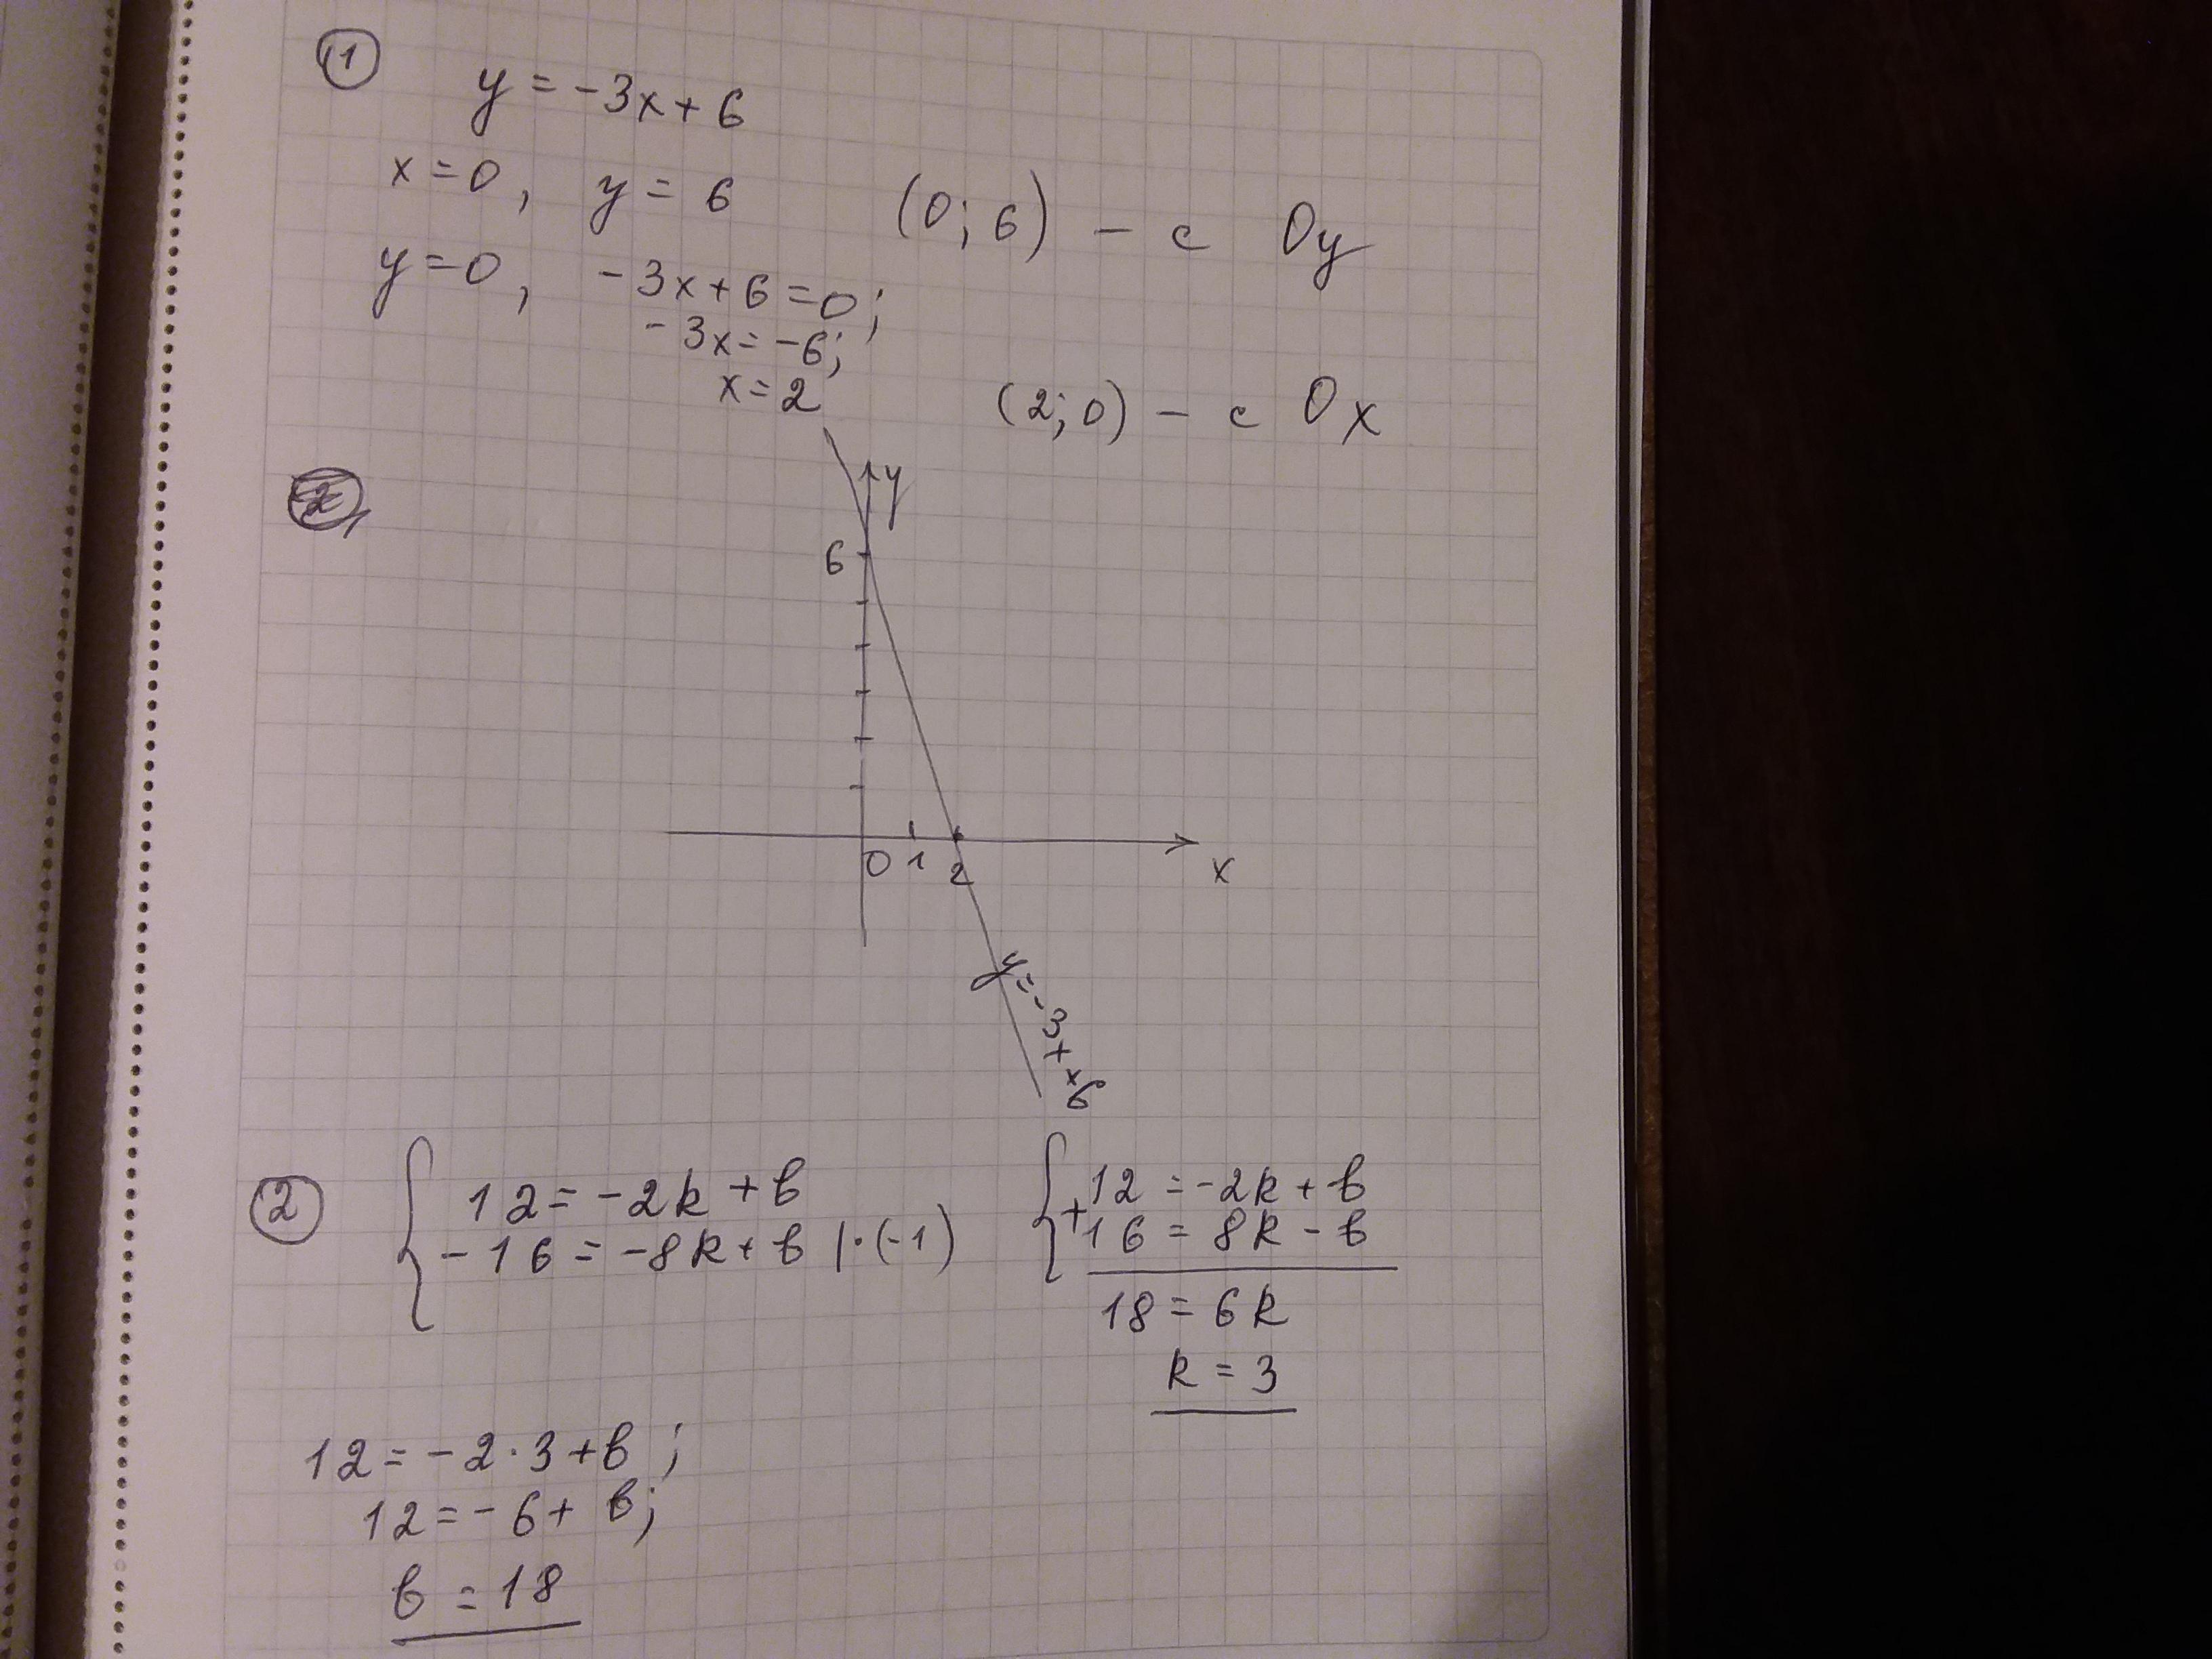 1
y = -3x + 6
x = 0, y = 6 (0; 6) - с Oy
y = 0, -3x + 6 = 0;
-3x = -6;
x = 2
(2; 0) - с Ox
2
y
6
0 1 2 x
y = -3x + 6
2
{ 12 = -2k + b
-16 = -8k + b | · (-1)
{ + 12 = -2k + b
16 = 8k - b
18 = 6k
k = 3
12 = -2 · 3 + b;
12 = -6 + b;
b = 18